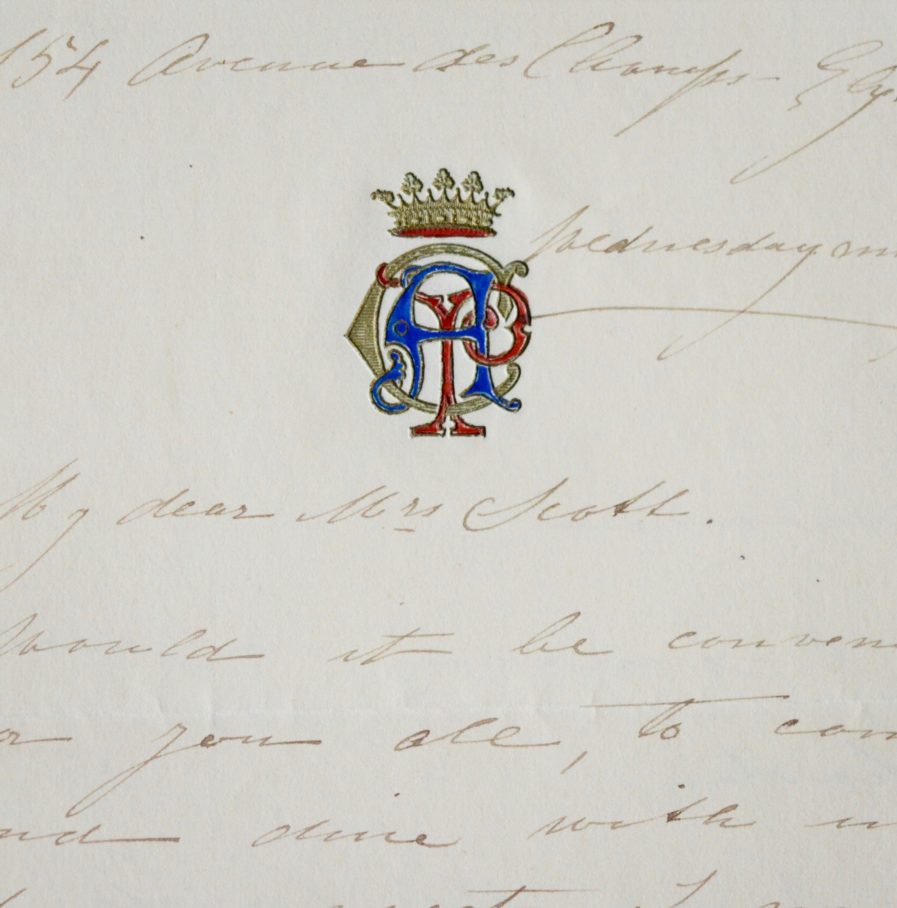 154 Avenue des Champs-Ely
Wednesday m
My dear Mrs Scott.
Would it be conven
or you all, to com
nd dine with u